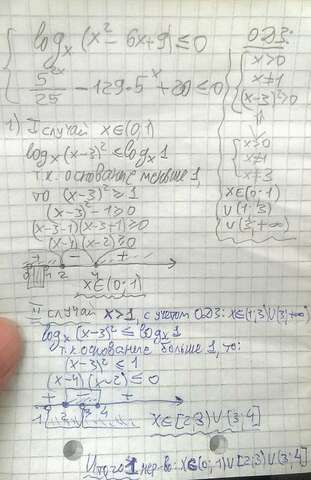 { logₓ(x²-6x+9) ≤ 0
5²ˣ/25 - 129·5ˣ + 20 ≤ 0
ОДЗ:
{ x>0
x≠1
(x-3)²>0
⇕
{ x>0
x≠1
x≠3
x∈(0;1)
∪(1;3)
∪(3;+∞)
1) I случай x∈(0;1)
logₓ(x-3)² ≤ logₓ1
т.к. основание меньше 1,
то (x-3)² ≥ 1
(x-3)²-1 ≥ 0
(x-3-1)(x-3+1) ≥ 0
(x-4)(x-2) ≥ 0
+ - +
2 4
x∈(0;1)
II случай x>1, с учётом ОДЗ: x∈(1;3)∪(3;+∞)
logₓ(x-3)² ≤ logₓ1
т.к основание больше 1, то:
(x-3)² ≤ 1
(x-4)(x-2) ≤ 0
+ - - +
1 2 3 4
x∈[2;3)∪(3;4]
Итого 1 нер-во: x∈(0;1)∪[2;3)∪(3;4]